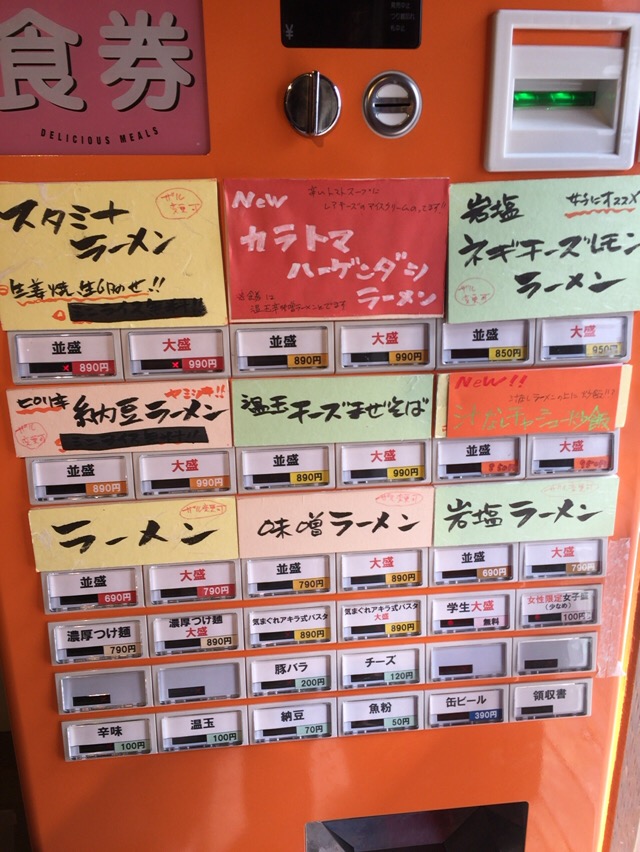 食券
DELICIOUS MEALS
¥
スタミナ
ラーメン
ザル
変更可
生姜焼、生卵のせ!!
New
辛いトマトスープに
カラトマ
ハーゲンダシ
ラーメン
岩塩
女子にオススメ
ネギチーズレモン
ラーメン
ザル
変更可
並盛
890円
大盛
990円
並盛
890円
大盛
990円
並盛
850円
大盛
950円
ピリ辛
納豆ラーメン
ヤミツキ!!
ザル
変更可
温玉チーズまぜそば
New!!
汁なしチャーシュー炒飯
並盛
890円
大盛
990円
並盛
890円
大盛
990円
並盛
大盛
ラーメン
ザル変更可
味噌ラーメン
ザル変更可
岩塩ラーメン
ザル変更可
並盛
690円
大盛
790円
並盛
790円
大盛
890円
並盛
690円
大盛
790円
濃厚つけ麺
790円
濃厚つけ麺
大盛
890円
気まぐれアキラ式パスタ
890円
気まぐれアキラ式パスタ
大盛
890円
学生大盛
無料
女性限定女子盛
(少なめ)
100円
豚バラ
200円
チーズ
120円
辛味
100円
温玉
100円
納豆
70円
魚粉
50円
缶ビール
390円
領収書